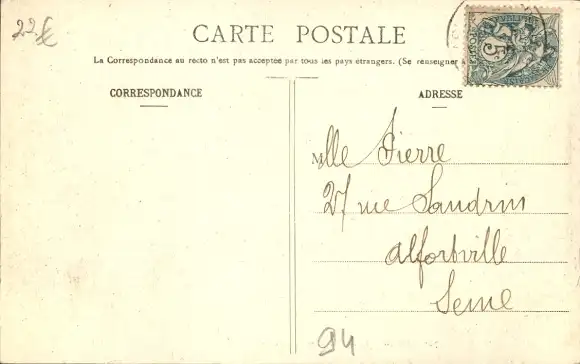 22€
CARTE POSTALE
La Correspondance au recto n'est pas acceptée par tous les pays étrangers. (Se renseigner
CORRESPONDANCE
ADRESSE
Mlle Pierre
27 rue Sandrin
Alfortville
Seine
94